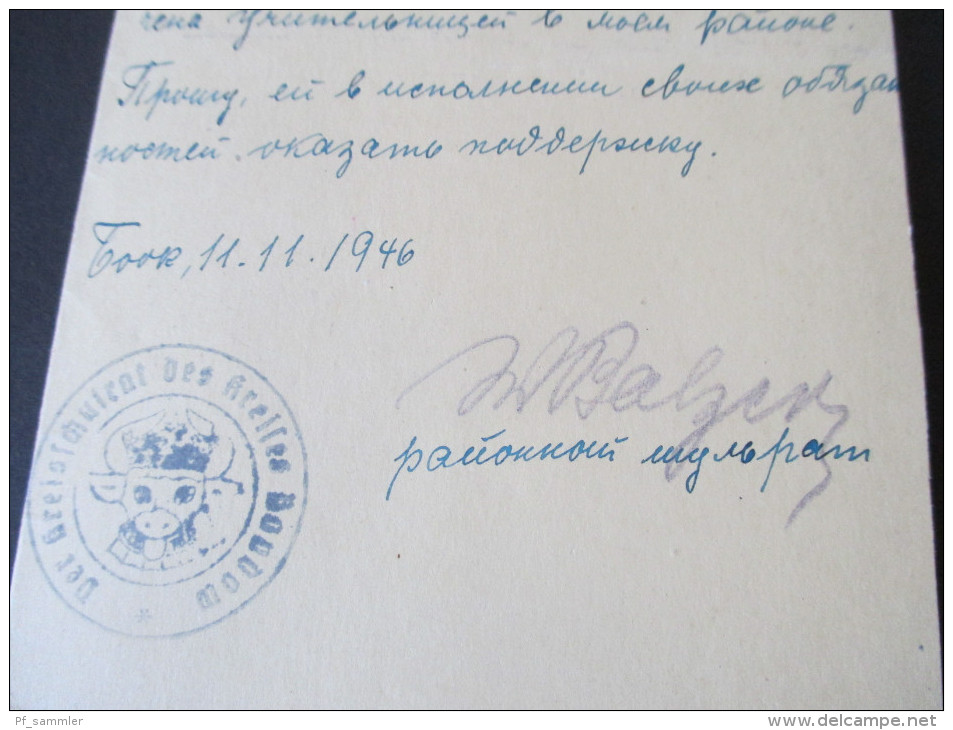 чена учительницей в моем районе.
Прошу, ей в исполнении своих обязан
ностей оказать поддержку.
Боок, 11.11.1946
Balzer
районный шульрат
Der Kreisschulrat des Kreises
Pf_sammler
www.delcampe.net